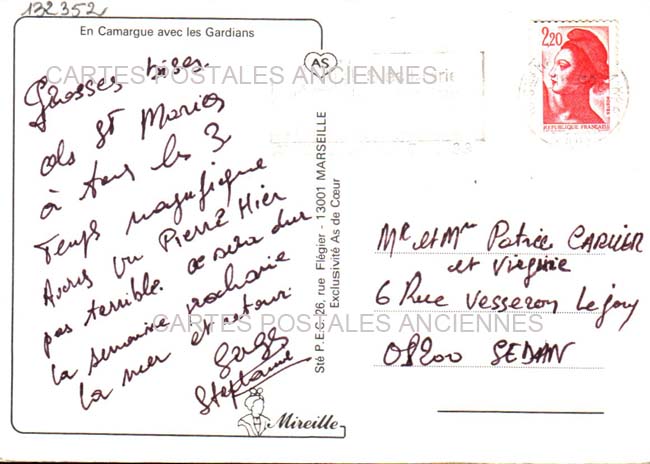 132352
En Camargue avec les Gardians
Grosses bises
des St Maries
à tous les 3
Temps magnifique
Avons vu Pierre Hier
pas terrible. ce sera dur
la semaine prochaine
la mer et retour.
Stephanie
Mireille
AS
Sté P.E.C. 26, rue Flégier - 13001 MARSEILLE
Exclusivité As de Cœur
2,20
REPUBLIQUE FRANÇAISE
Mr et Mme Patrice CARLIER
et Virginie
6 Rue Vesseron Lejay
08200 SEDAN
CARTES POSTALES ANCIENNES
CARTES POSTALES ANCIENNES